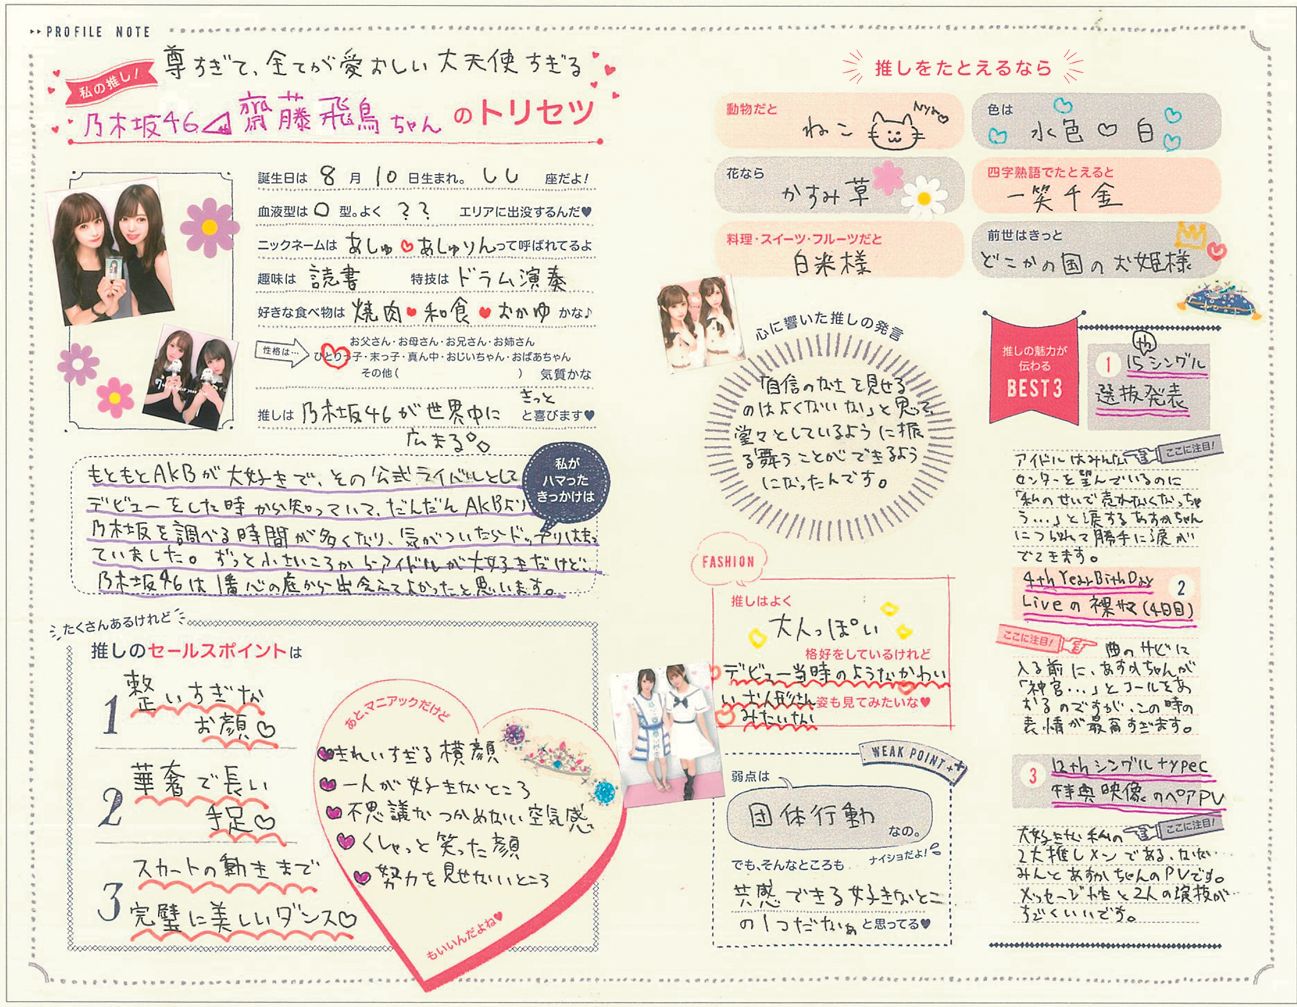 PROFILE NOTE
私の推し!
尊すぎて、全てが愛おしい大天使すぎる
乃木坂46 齋藤飛鳥ちゃんのトリセツ
誕生日は 8月10日生まれ。しし座だよ!
血液型は O 型。よく ?? エリアに出没するんだ♥
ニックネームは あしゅ♡あしゅりんって呼ばれてるよ
趣味は 読書 特技は ドラム演奏
好きな食べ物は 焼肉♥和食♥おかゆ かな♪
性格は…
お父さん・お母さん・お兄さん・お姉さん
ひとりっ子・末っ子・真ん中・おじいちゃん・おばあちゃん
その他( ) 気質かな
推しは 乃木坂46が世界中に きっと と喜びます♥
広まる
私がハマったきっかけは
もともとAKBが大好きで、その公式ライバルとして
デビューをした時から知っていて、だんだんAKBより
乃木坂を調べる時間が多くなり、気がついたらドップリはまっ
ていました。ずっと小さいころからアイドルが大好きだけど、
乃木坂46は1番心の底から出会えてよかったと思います。
たくさんあるけれど
推しのセールスポイントは
1 整いすぎな
お顔♡
2 華奢で長い
手足♡
3 スカートの動きまで
完璧に美しいダンス♡
あと、マニアックだけど
♥きれいすぎる横顔
♥一人が好きなところ
♥不思議なつかめない空気感
♥くしゃっと笑った顔
♥努力を見せないところ
もいいんだよね♥
推しをたとえるなら
動物だと
ねこ
色は
水色♡白
花なら
かすみ草
四字熟語でたとえると
一笑千金
料理・スイーツ・フルーツだと
白米様
前世はきっと
どこかの国のお姫様
心に響いた推しの発言
「自信のなさを見せる
のはよくないな」と思って、
堂々としているように振
る舞うことができるよう
になったんです。
FASHION
推しはよく
大人っぽい
格好をしているけれど
デビュー当時のようなかわい
いお人形さん姿も見てみたいな♥
みたいな
WEAK POINT
弱点は
団体行動 なの。
ナイショだよ!
でも、そんなところも
共感できる好きなとこ
の1つだなぁ と思ってる♥
推しの魅力が
伝わる
BEST3
1 15th シングル
選抜発表
ここに注目!
アイドルはみんな
センターを望んでいるのに
「私のせいで売れなくなっちゃ
う…」と涙するあすかちゃん
につられて勝手に涙が
でてきます。
2
4th Year BirthDay
Liveの裸サマ(4日目)
ここに注目!
曲のサビに
入る前に、あすかちゃんが
「神宮…」とコールをあ
おるのですが、この時の
表情が最高すぎます。
3 12thシングル typeC
特典映像のペアPV
ここに注目!
大好きな私の
2大推しメンである、なな
みんとあすかちゃんのPVです。
メッセージ性と2人の演技が
すごくいいです。